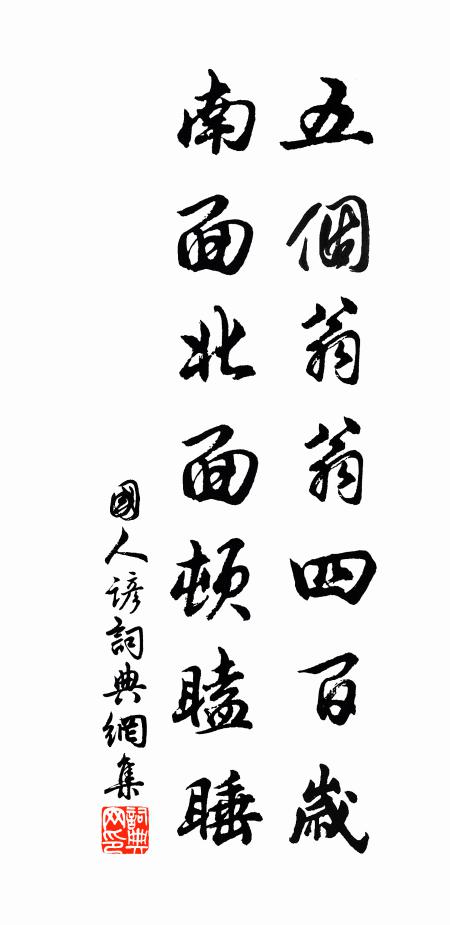 五個翁翁四百歲
南面北面頓瞌睡
國人諺詞典網集
詞典網印